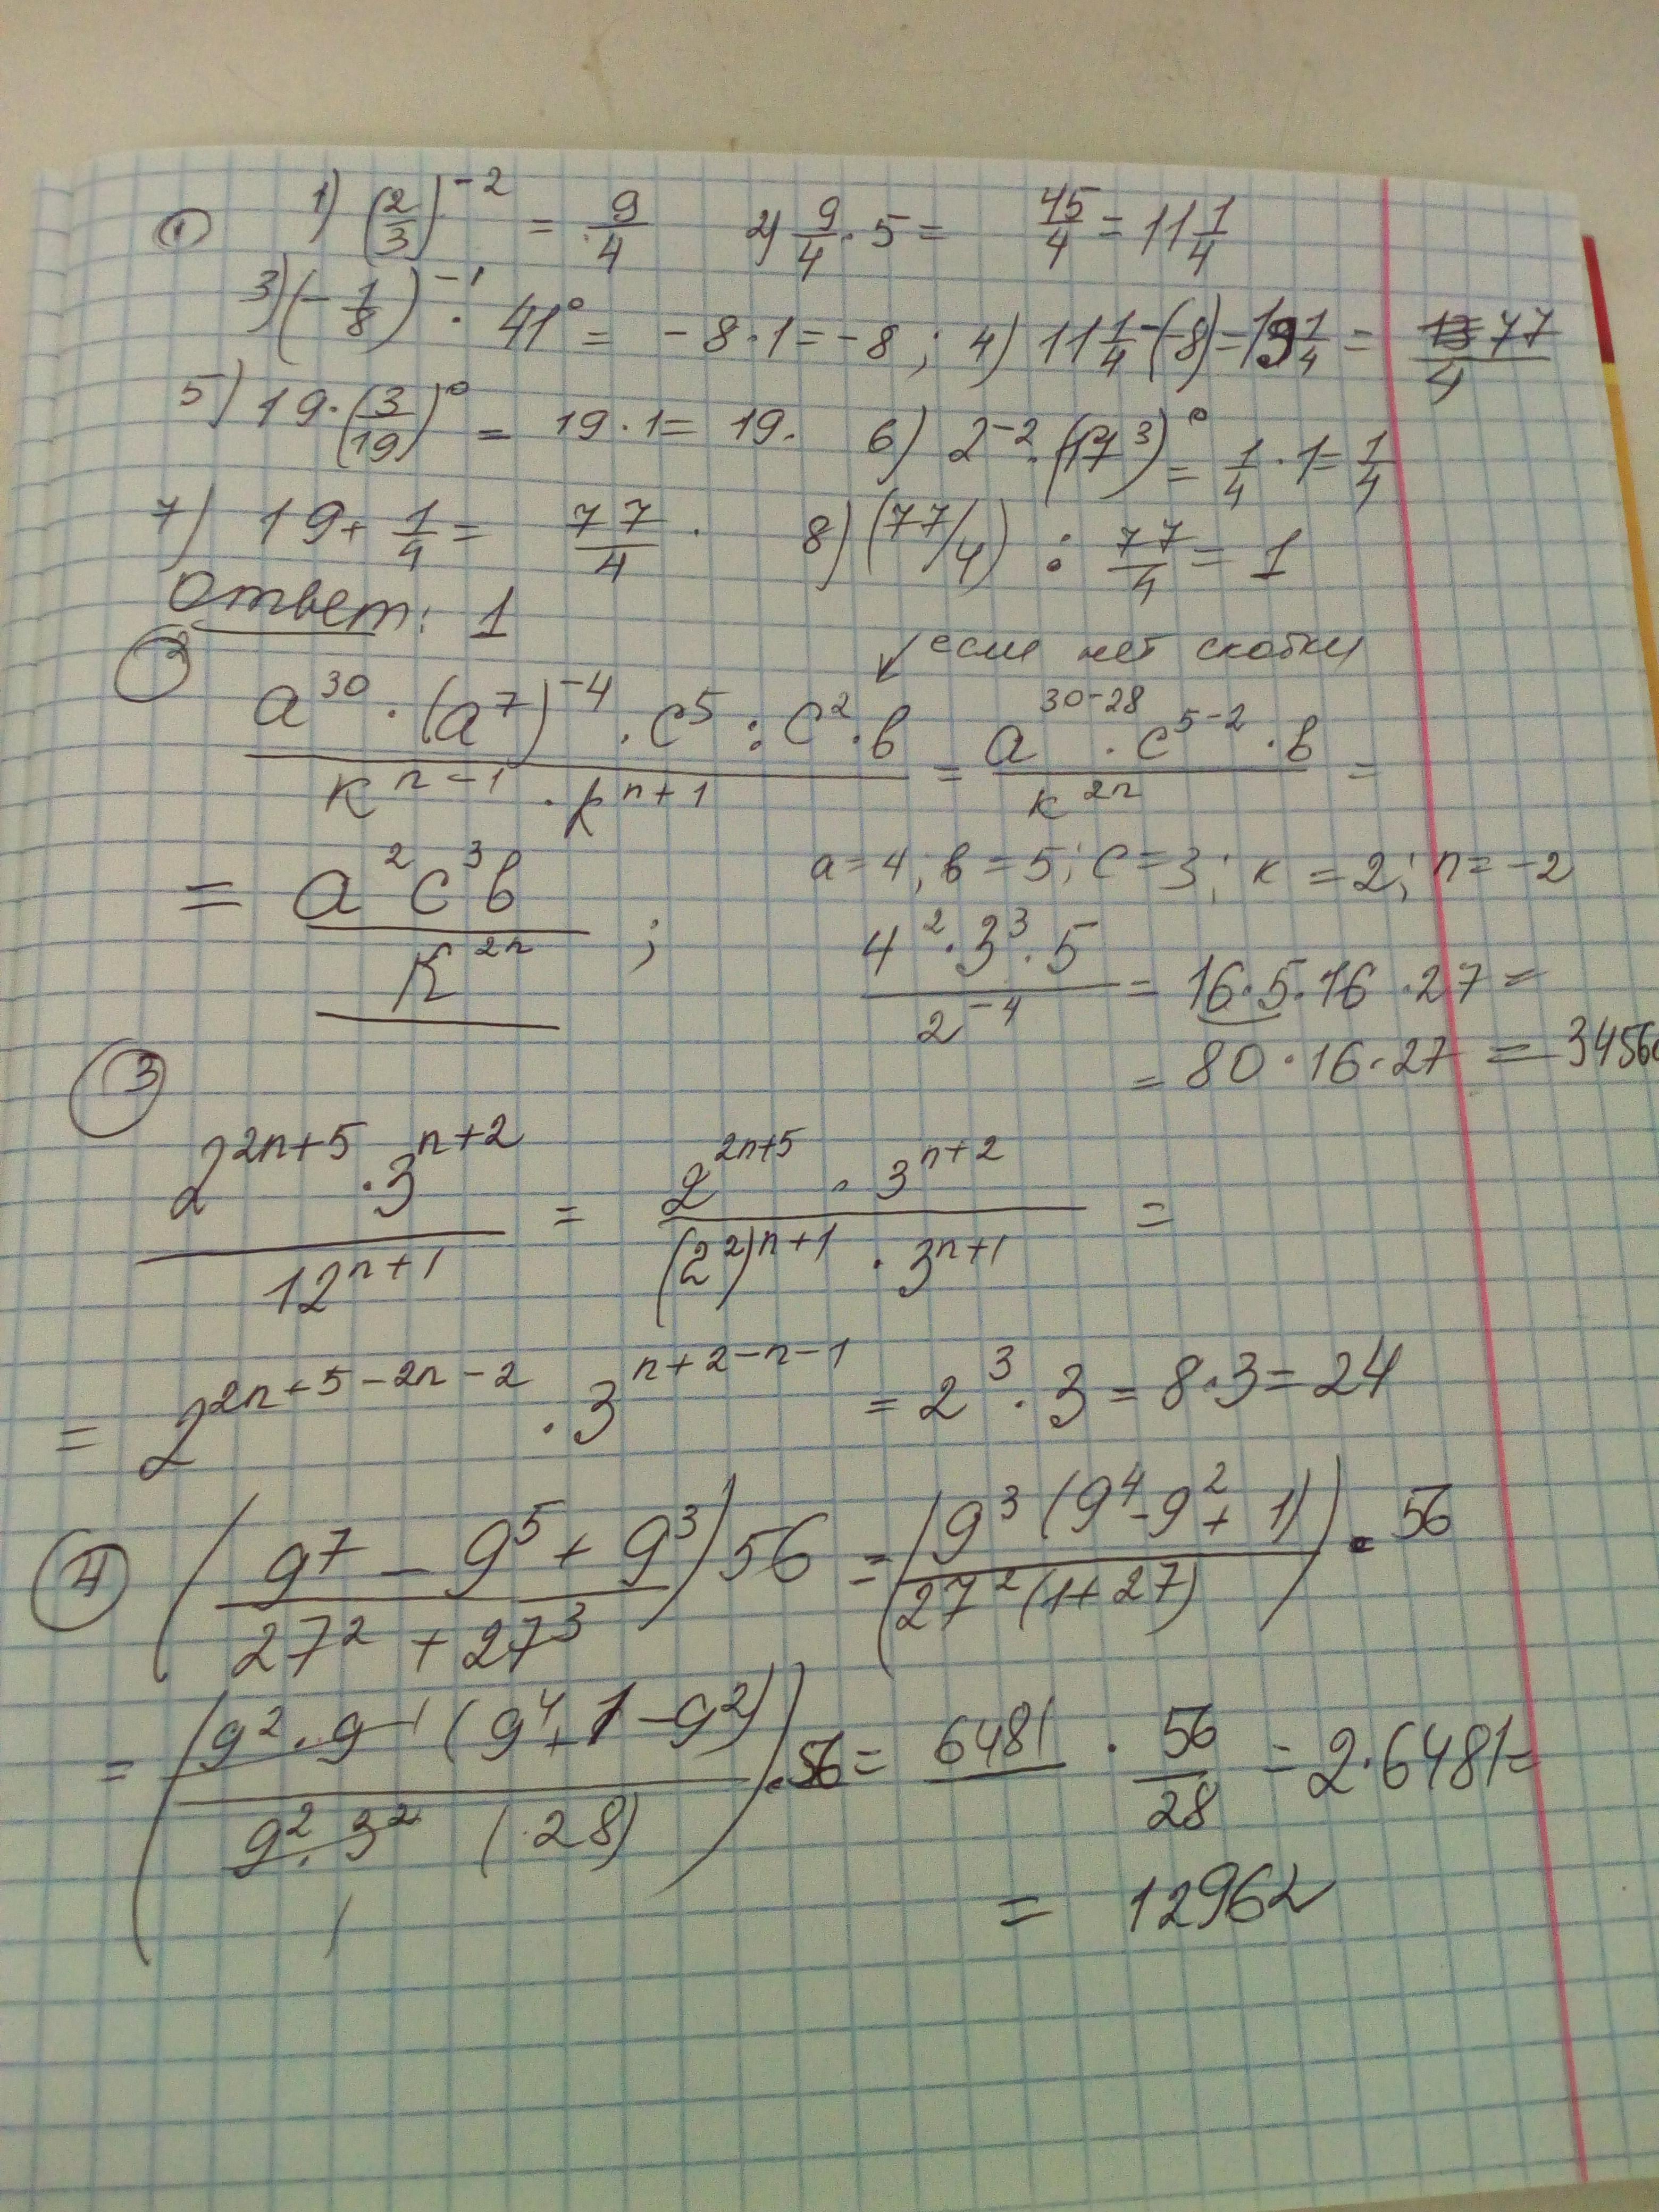 ① 1) (2/3)^-2 = 9/4 2) 9/4 · 5 = 45/4 = 11 1/4
3) (-1/8)^-1 · 41° = -8·1 = -8 ; 4) 11 1/4 - (-8) = 19 1/4 = 77/4
5) 19 · (3/19)° = 19·1 = 19. 6) 2^-2 · (17^3)° = 1/4 · 1 = 1/4
7) 19 + 1/4 = 77/4 . 8) (77/4) : 77/4 = 1
Ответ: 1
② ↙ если нет скобки
a^30 · (a^7)^-4 · c^5 : c^2 · b / k^(n-1) · k^(n+1) = a^(30-28) · c^(5-2) · b / k^(2n) =
= a^2 c^3 b / k^(2n) ; a=4; b=5; c=3; k=2; n=-2
4^2 · 3^3 · 5 / 2^-4 = 16·5·16·27 =
= 80·16·27 = 34560
③
2^(2n+5) · 3^(n+2) / 12^(n+1) = 2^(2n+5) · 3^(n+2) / (2^2)^(n+1) · 3^(n+1) =
= 2^(2n+5-2n-2) · 3^(n+2-n-1) = 2^3 · 3 = 8·3 = 24
④ (9^7 - 9^5 + 9^3 / 27^2 + 27^3) 56 = (9^3 (9^4 - 9^2 + 1) / 27^2 (1+27)) · 56
= (9^2 · 9^1 (9^4 + 1 - 9^2) / 9^2 · 3^2 (28)) · 56 = 6481 · 56/28 = 2·6481 =
= 12962